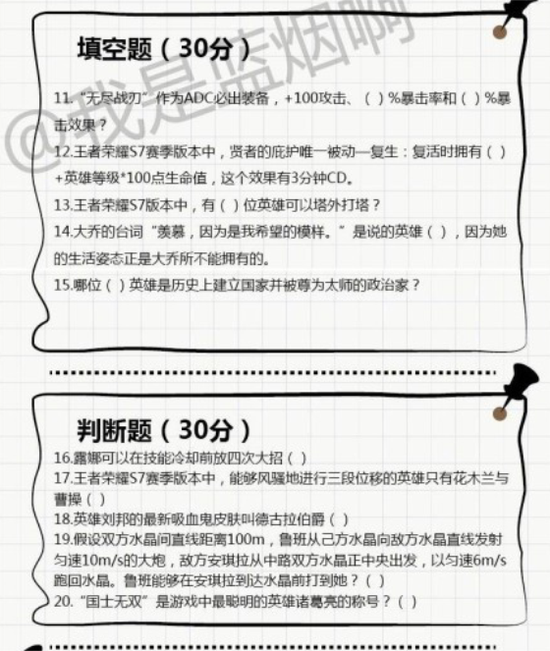 填空题（30分）
@我是蓝烟啊
11.“无尽战刃”作为ADC必出装备，+100攻击、（ ）%暴击率和（ ）%暴
击效果？
12.王者荣耀S7赛季版本中，贤者的庇护唯一被动—复生：复活时拥有（ ）
+英雄等级*100点生命值，这个效果有3分钟CD。
13.王者荣耀S7版本中，有（ ）位英雄可以塔外打塔？
14.大乔的台词“羡慕，因为是我希望的模样。”是说的英雄（ ），因为她
的生活姿态正是大乔所不能拥有的。
15.哪位（ ）英雄是历史上建立国家并被尊为太师的政治家？
判断题（30分）
16.露娜可以在技能冷却前放四次大招（ ）
17.王者荣耀S7赛季版本中，能够风骚地进行三段位移的英雄只有花木兰与
曹操（ ）
18.英雄刘邦的最新吸血鬼皮肤叫德古拉伯爵（ ）
19.假设双方水晶间直线距离100m，鲁班从己方水晶向敌方水晶直线发射
匀速10m/s的大炮，敌方安琪拉从中路双方水晶正中央出发，以匀速6m/s
跑回水晶。鲁班能够在安琪拉到达水晶前打到她？（ ）
20.“国士无双”是游戏中最聪明的英雄诸葛亮的称号？（ ）